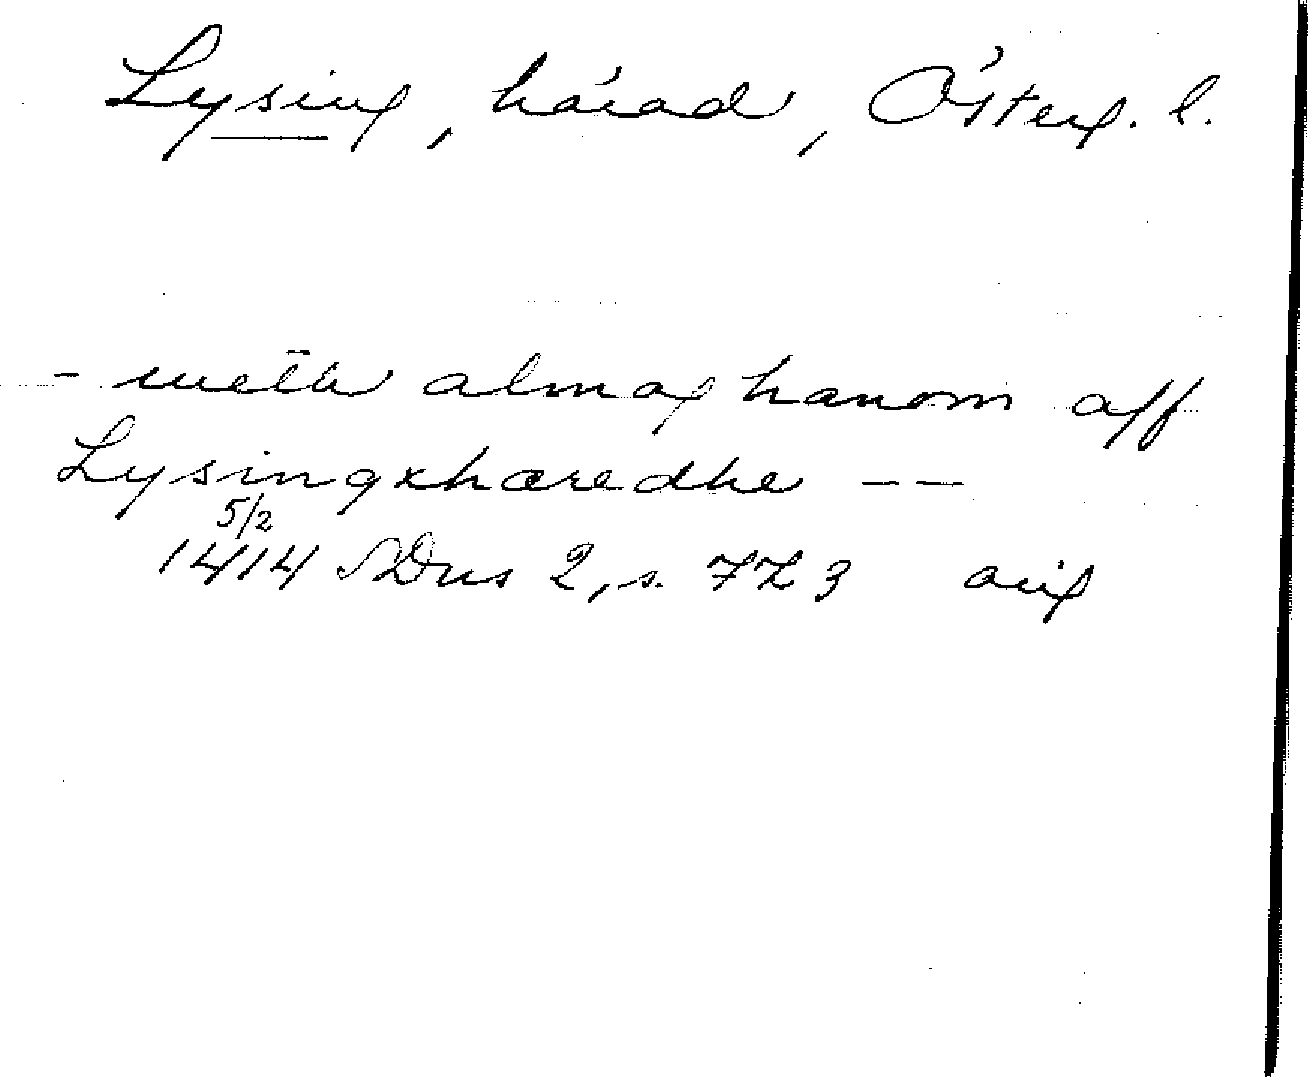 Lysing, härad, Österg. l.
- meth almoghanom aff
Lysingxhæredhe --
5/2
1414 SDns 2, s. 723 orig